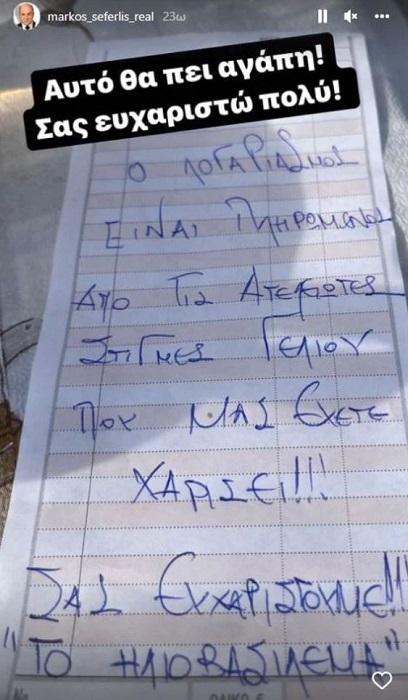 markos_seferlis_real 23ω
Αυτό θα πει αγάπη!
Σας ευχαριστώ πολύ!
Ο ΛΟΓΑΡΙΑΣΜΟΣ
ΕΙΝΑΙ ΠΛΗΡΩΜΕΝΟΣ
ΑΠΟ ΤΙΣ ΑΤΕΛΕΙΩΤΕΣ
ΣΤΙΓΜΕΣ ΓΕΛΙΟΥ
ΠΟΥ ΜΑΣ ΕΧΕΤΕ
ΧΑΡΙΣΕΙ!!!
ΣΑΣ ΕΥΧΑΡΙΣΤΟΥΜΕ!!!
"ΤΟ ΗΛΙΟΒΑΣΙΛΕΜΑ"